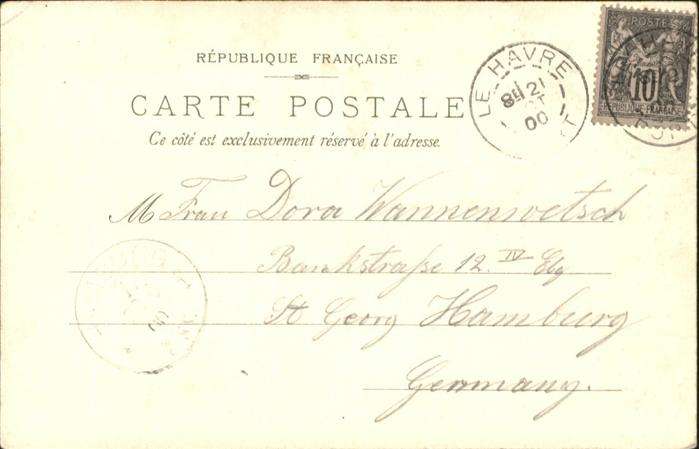 RÉPUBLIQUE FRANÇAISE
CARTE POSTALE
Ce côté est exclusivement réservé à l'adresse.
LE HAVRE
21
00
POSTES
10
RÉPUBLIQUE FRANÇAISE
M Frau Dora Wannenwetsch
Bankstraße 12. IV Etg
St Georg Hamburg
Germany.